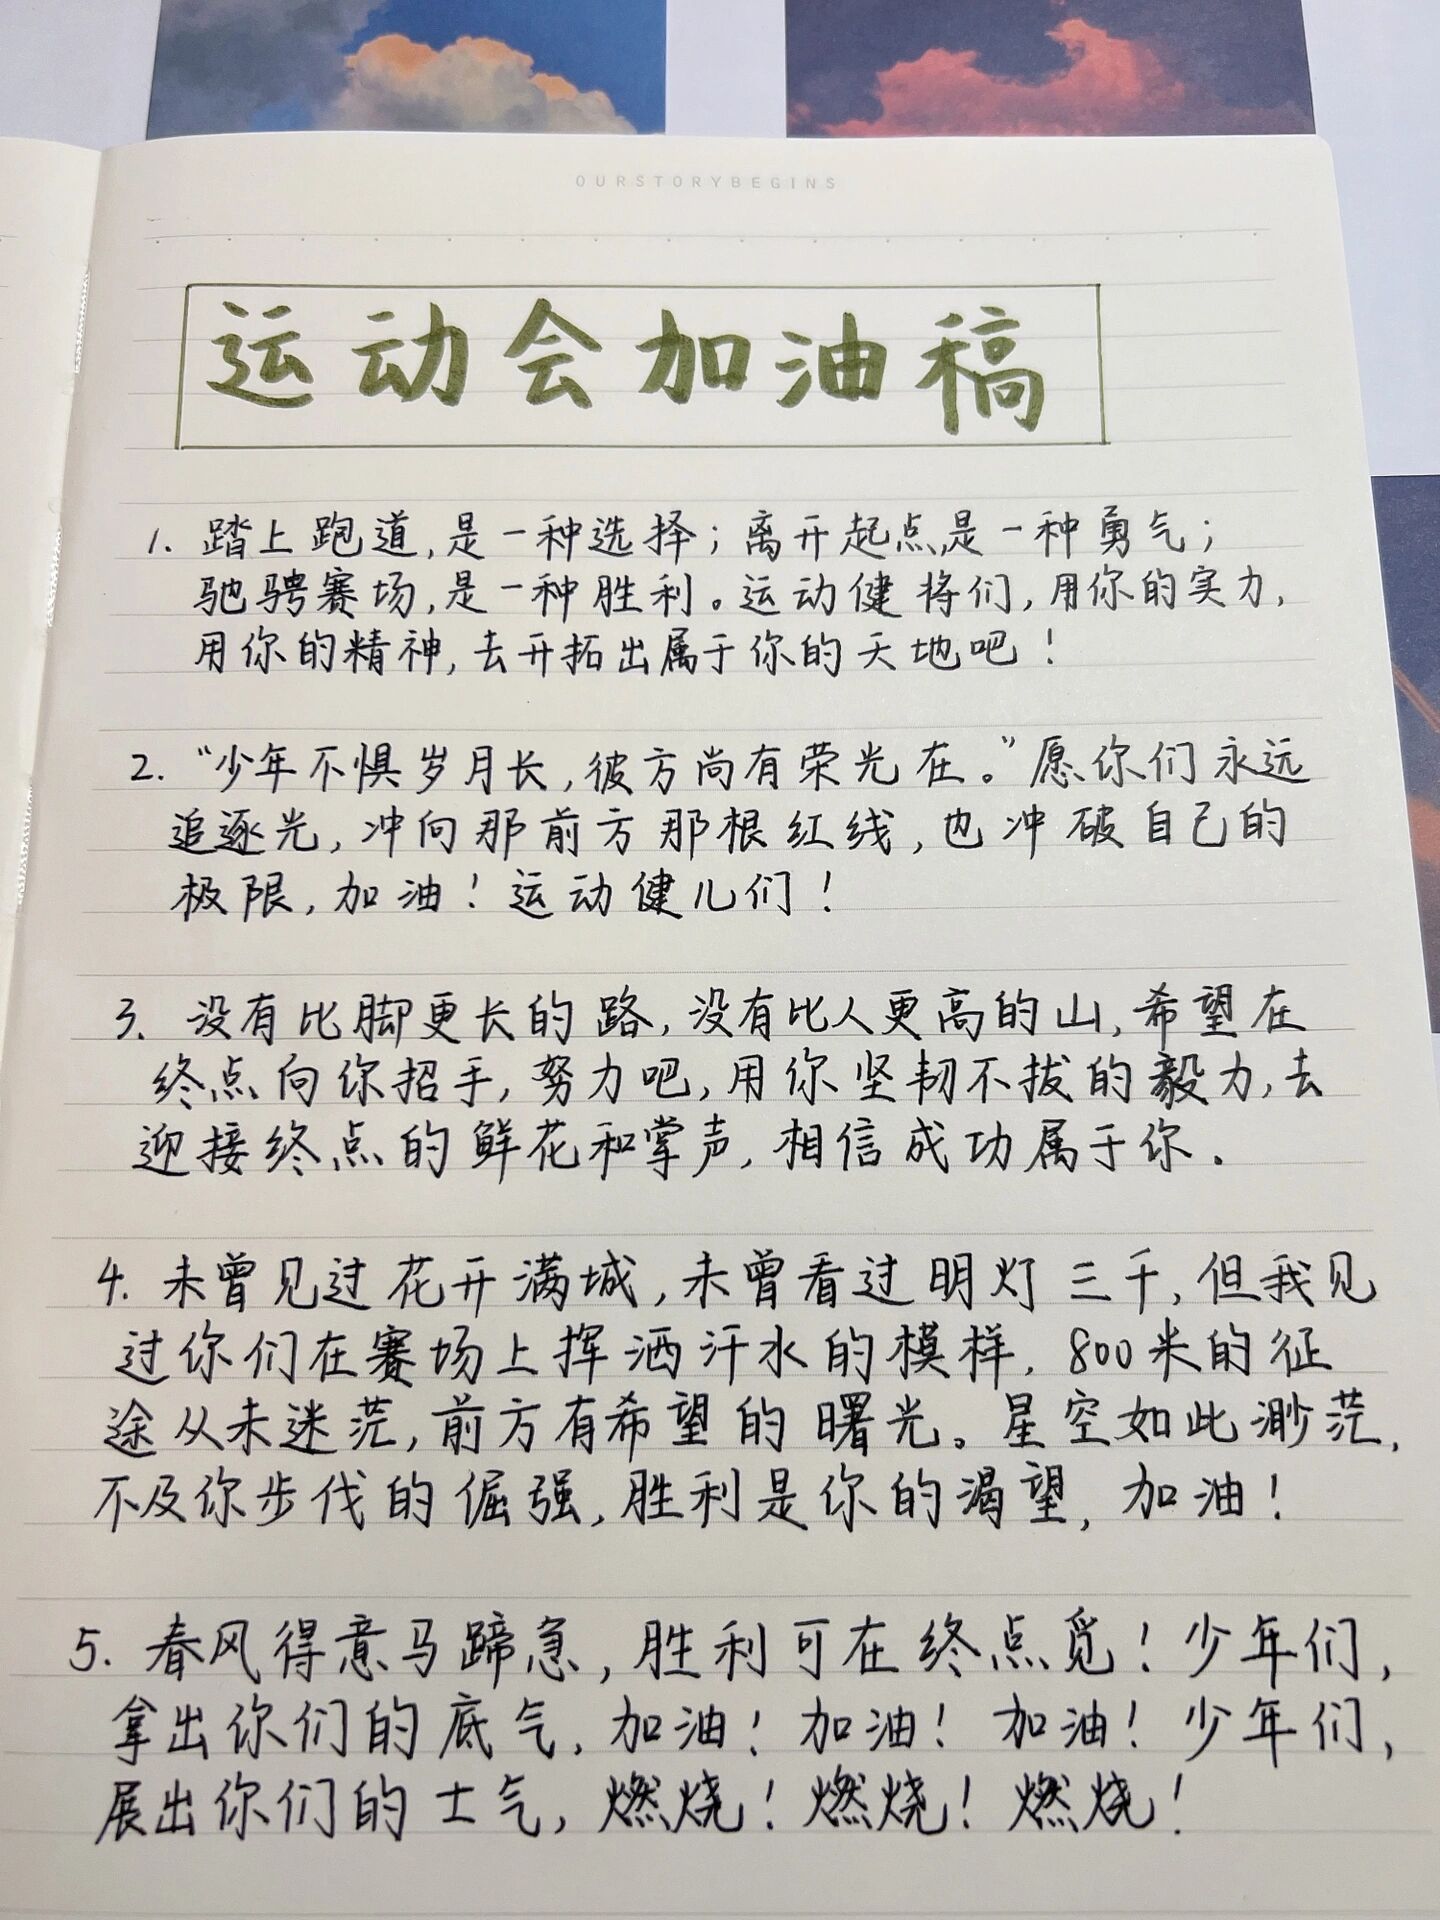 OURSTORYBEGINS
运动会加油稿
1. 踏上跑道,是一种选择;离开起点,是一种勇气;
驰骋赛场,是一种胜利。运动健将们,用你的实力,
用你的精神,去开拓出属于你的天地吧!
2. “少年不惧岁月长,彼方尚有荣光在。”愿你们永远
追逐光,冲向那前方那根红线,也冲破自己的
极限,加油!运动健儿们!
3. 没有比脚更长的路,没有比人更高的山,希望在
终点向你招手,努力吧,用你坚韧不拔的毅力,去
迎接终点的鲜花和掌声,相信成功属于你.
4. 未曾见过花开满城,未曾看过明灯三千,但我见
过你们在赛场上挥洒汗水的模样,800米的征
途从未迷茫,前方有希望的曙光。星空如此渺茫,
不及你步伐的倔强,胜利是你的渴望,加油!
5. 春风得意马蹄急,胜利可在终点觅!少年们,
拿出你们的底气,加油!加油!加油!少年们,
展出你们的士气,燃烧!燃烧!燃烧!